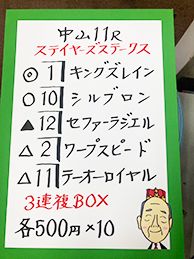 中山11R
ステイヤーズステークス
◎ 1 キングズレイン
○ 10 シルブロン
▲ 12 セファーラジエル
△ 2 ワープスピード
△ 11 テーオーロイヤル
3連複BOX
各500円×10